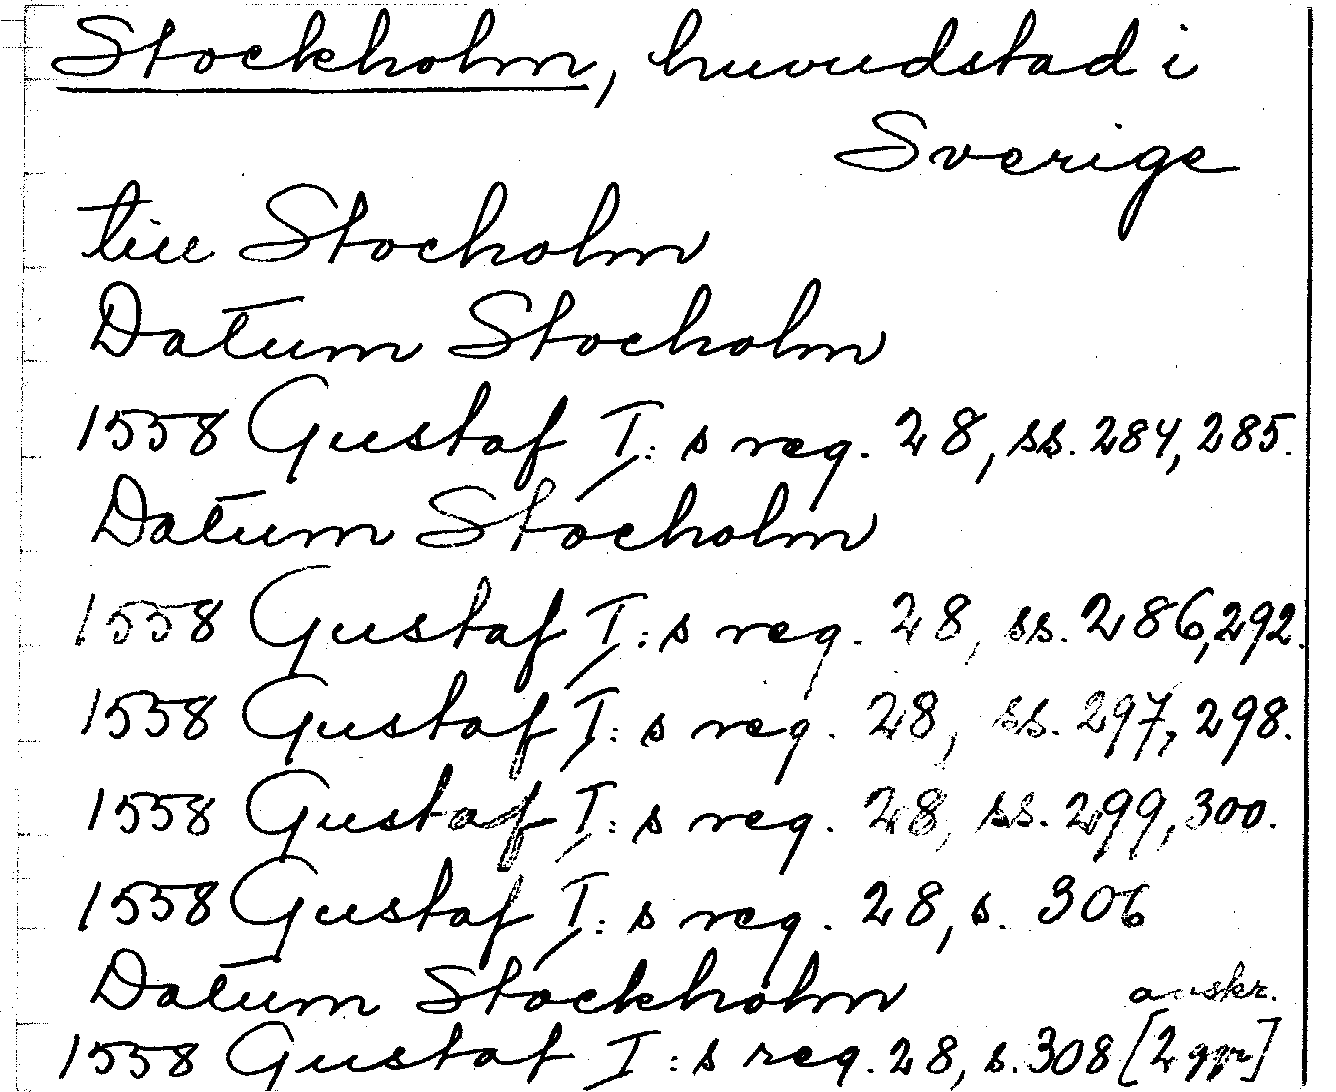 Stockholm, huvudstad i
Sverige
till Stocholm
Datum Stocholm
1558 Gustaf I:s reg. 28, ss. 284, 285.
Datum Stocholm
1558 Gustaf I:s reg. 28, ss. 286, 292.
1558 Gustaf I:s reg. 28, ss. 297, 298.
1558 Gustaf I:s reg. 28, ss. 299, 300.
1558 Gustaf I:s reg. 28, s. 306
Datum Stockholm avskr.
1558 Gustaf I:s reg. 28, s. 308 [2 ggr]